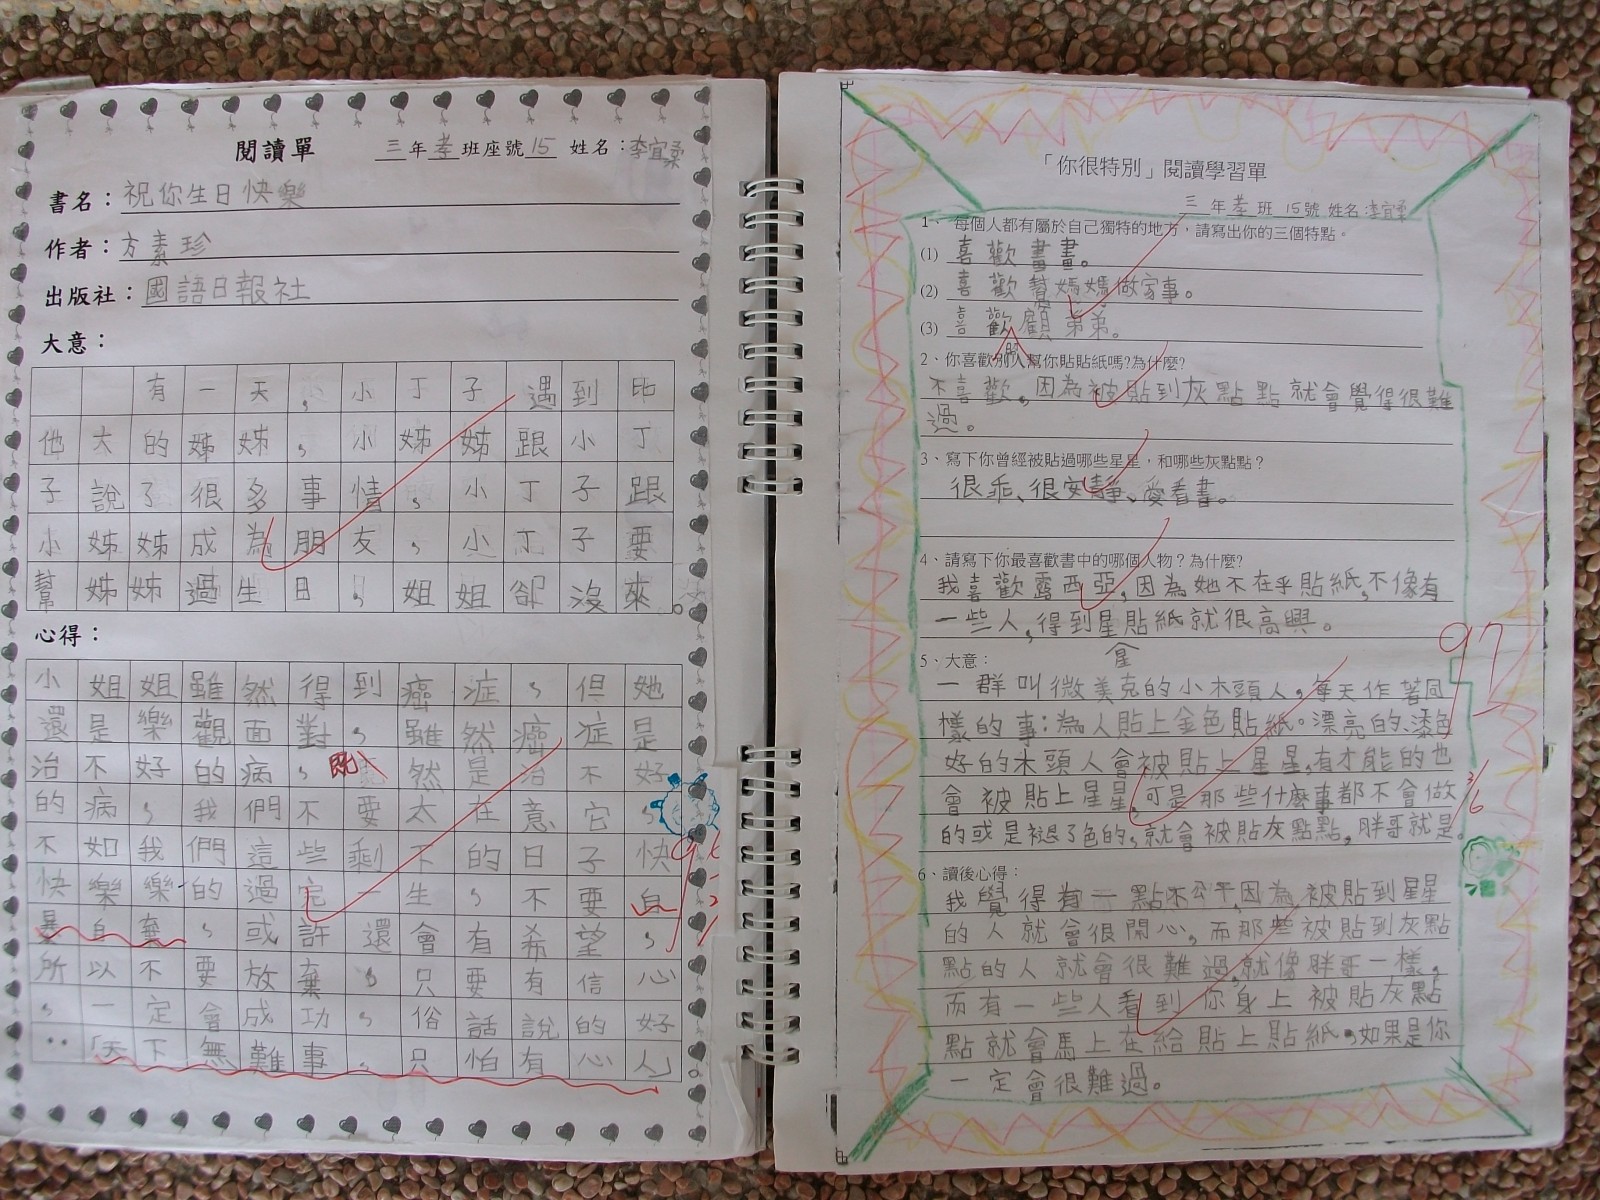 閱讀單 三年孝班座號15 姓名：李宜柔
書名：祝你生日快樂
作者：方素珍
出版社：國語日報社
大意：
有一天，小丁子遇到比
他大的姊姊，小姊姊跟小丁
子說了很多事情，小丁子跟
小姊姊成為朋友，小丁子要
幫姊姊過生日，姐姐卻沒來。
心得：
小姐姐雖然得到癌症，但她
還是樂觀面對，雖然癌症是
治不好的病，既然是治不好
的病，我們不要太在意它，
不如我們這些剩下的日子快
快樂樂的過完一生，不要自
暴自棄，或許還會有希望，
所以不要放棄，只要有信心
，一定會成功，俗話說的好
：「天下無難事，只怕有心人」。
「你很特別」閱讀學習單
三年孝班 15號 姓名:李宜柔
1、 每個人都有屬於自己獨特的地方，請寫出你的三個特點。
(1) 喜歡畫畫。
(2) 喜歡幫媽媽做家事。
(3) 喜歡照顧弟弟。
2、你喜歡別人幫你貼貼紙嗎?為什麼?
不喜歡，因為被貼到灰點點就會覺得很難
過。
3、寫下你曾經被貼過哪些星星，和哪些灰點點？
很乖、很安靜、愛看書。
4、請寫下你最喜歡書中的哪個人物？為什麼?
我喜歡露西亞，因為她不在乎貼紙，不像有
一些人，得到星星貼紙就很高興。
5、大意：
一群叫微美克的小木頭人，每天作著同
樣的事：為人貼上金色貼紙。漂亮的、漆色
好的木頭人會被貼上星星，有才能的也
會被貼上星星，可是那些什麼事都不會做
的或是褪了色的，就會被貼灰點點，胖哥就是。
6、讀後心得：
我覺得有一點不公平，因為被貼到星星
的人就會很開心，而那些被貼到灰點
點的人就會很難過，就像胖哥一樣，
而有一些人看到你身上被貼灰點
點就會馬上在給貼上貼紙，如果是你
一定會很難過。
97
3/6